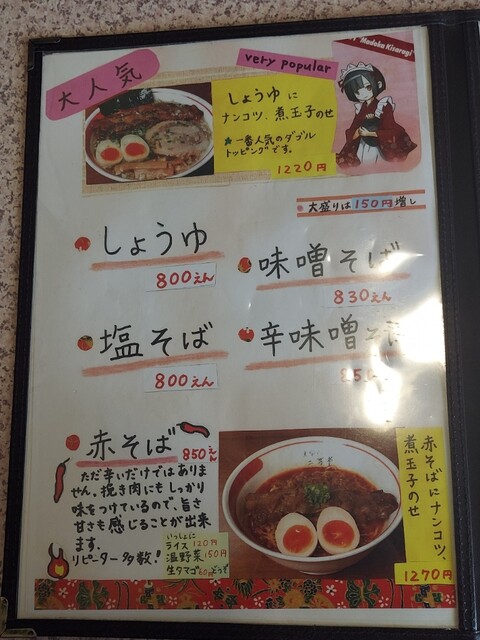 大人気
very popular
Madoka Kisaragi
しょうゆに
ナンコツ、煮玉子のせ
★一番人気のダブル
トッピングです。
1220円
大盛りは150円増し
しょうゆ
800えん
味噌そば
830えん
塩そば
800えん
辛味噌そ
850
赤そば
850えん
ただ辛いだけではありま
せん。挽き肉にもしっかり
味をつけているので、旨さ
甘さも感じることが出来
ます。
リピーター多数!
いっしょに
ライス120円
温野菜150円
生タマゴ60円どうぞ
赤そばにナンコツ、
煮玉子のせ
1270円